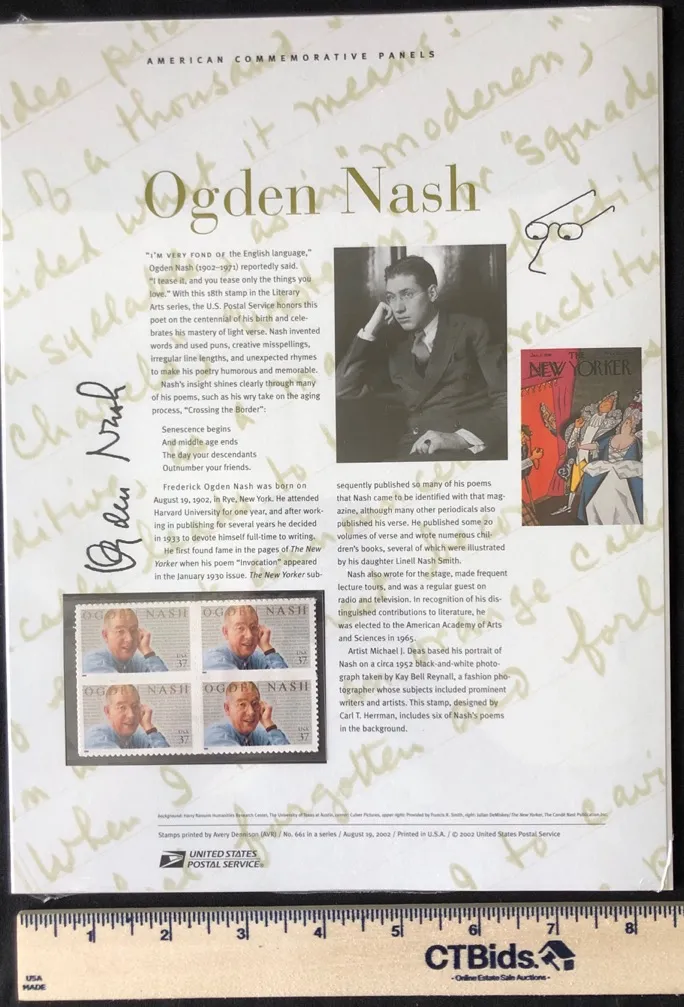 AMERICAN COMMEMORATIVE PANELS
Ogden Nash
"I'M VERY FOND OF the English language,"
Ogden Nash (1902–1971) reportedly said.
"I tease it, and you tease only the things you
love." With this 18th stamp in the Literary
Arts series, the U.S. Postal Service honors this
poet on the centennial of his birth and cele-
brates his mastery of light verse. Nash invented
words and used puns, creative misspellings,
irregular line lengths, and unexpected rhymes
to make his poetry humorous and memorable.
Nash's insight shines clearly through many
of his poems, such as his wry take on the aging
process, "Crossing the Border":
Senescence begins
And middle age ends
The day your descendants
Outnumber your friends.
Frederick Ogden Nash was born on
August 19, 1902, in Rye, New York. He attended
Harvard University for one year, and after work-
ing in publishing for several years he decided
in 1933 to devote himself full-time to writing.
He first found fame in the pages of The New
Yorker when his poem "Invocation" appeared
in the January 1930 issue. The New Yorker sub-
sequently published so many of his poems
that Nash came to be identified with that mag-
azine, although many other periodicals also
published his verse. He published some 20
volumes of verse and wrote numerous chil-
dren's books, several of which were illustrated
by his daughter Linell Nash Smith.
Nash also wrote for the stage, made frequent
lecture tours, and was a regular guest on
radio and television. In recognition of his dis-
tinguished contributions to literature, he
was elected to the American Academy of Arts
and Sciences in 1965.
Artist Michael J. Deas based his portrait of
Nash on a circa 1952 black-and-white photo-
graph taken by Kay Bell Reynall, a fashion pho-
tographer whose subjects included prominent
writers and artists. This stamp, designed by
Carl T. Herrman, includes six of Nash's poems
in the background.
THE
NEW YORKER
Ogden Nash
OGDEN NASH
USA
37
OGDEN NASH
USA
37
OGDEN NASH
USA
37
OGDEN NASH
USA
37
of a thousand
what it means
"moderen"
"squade
Stamps printed by Avery Dennison (AVR) / No. 661 in a series / August 19, 2002 / Printed in U.S.A. / © 2002 United States Postal Service
UNITED STATES
POSTAL SERVICE
1 2 3 4 5 6 7 8
USA
MADE
CTBids.
- Online Estate Sale Auctions -